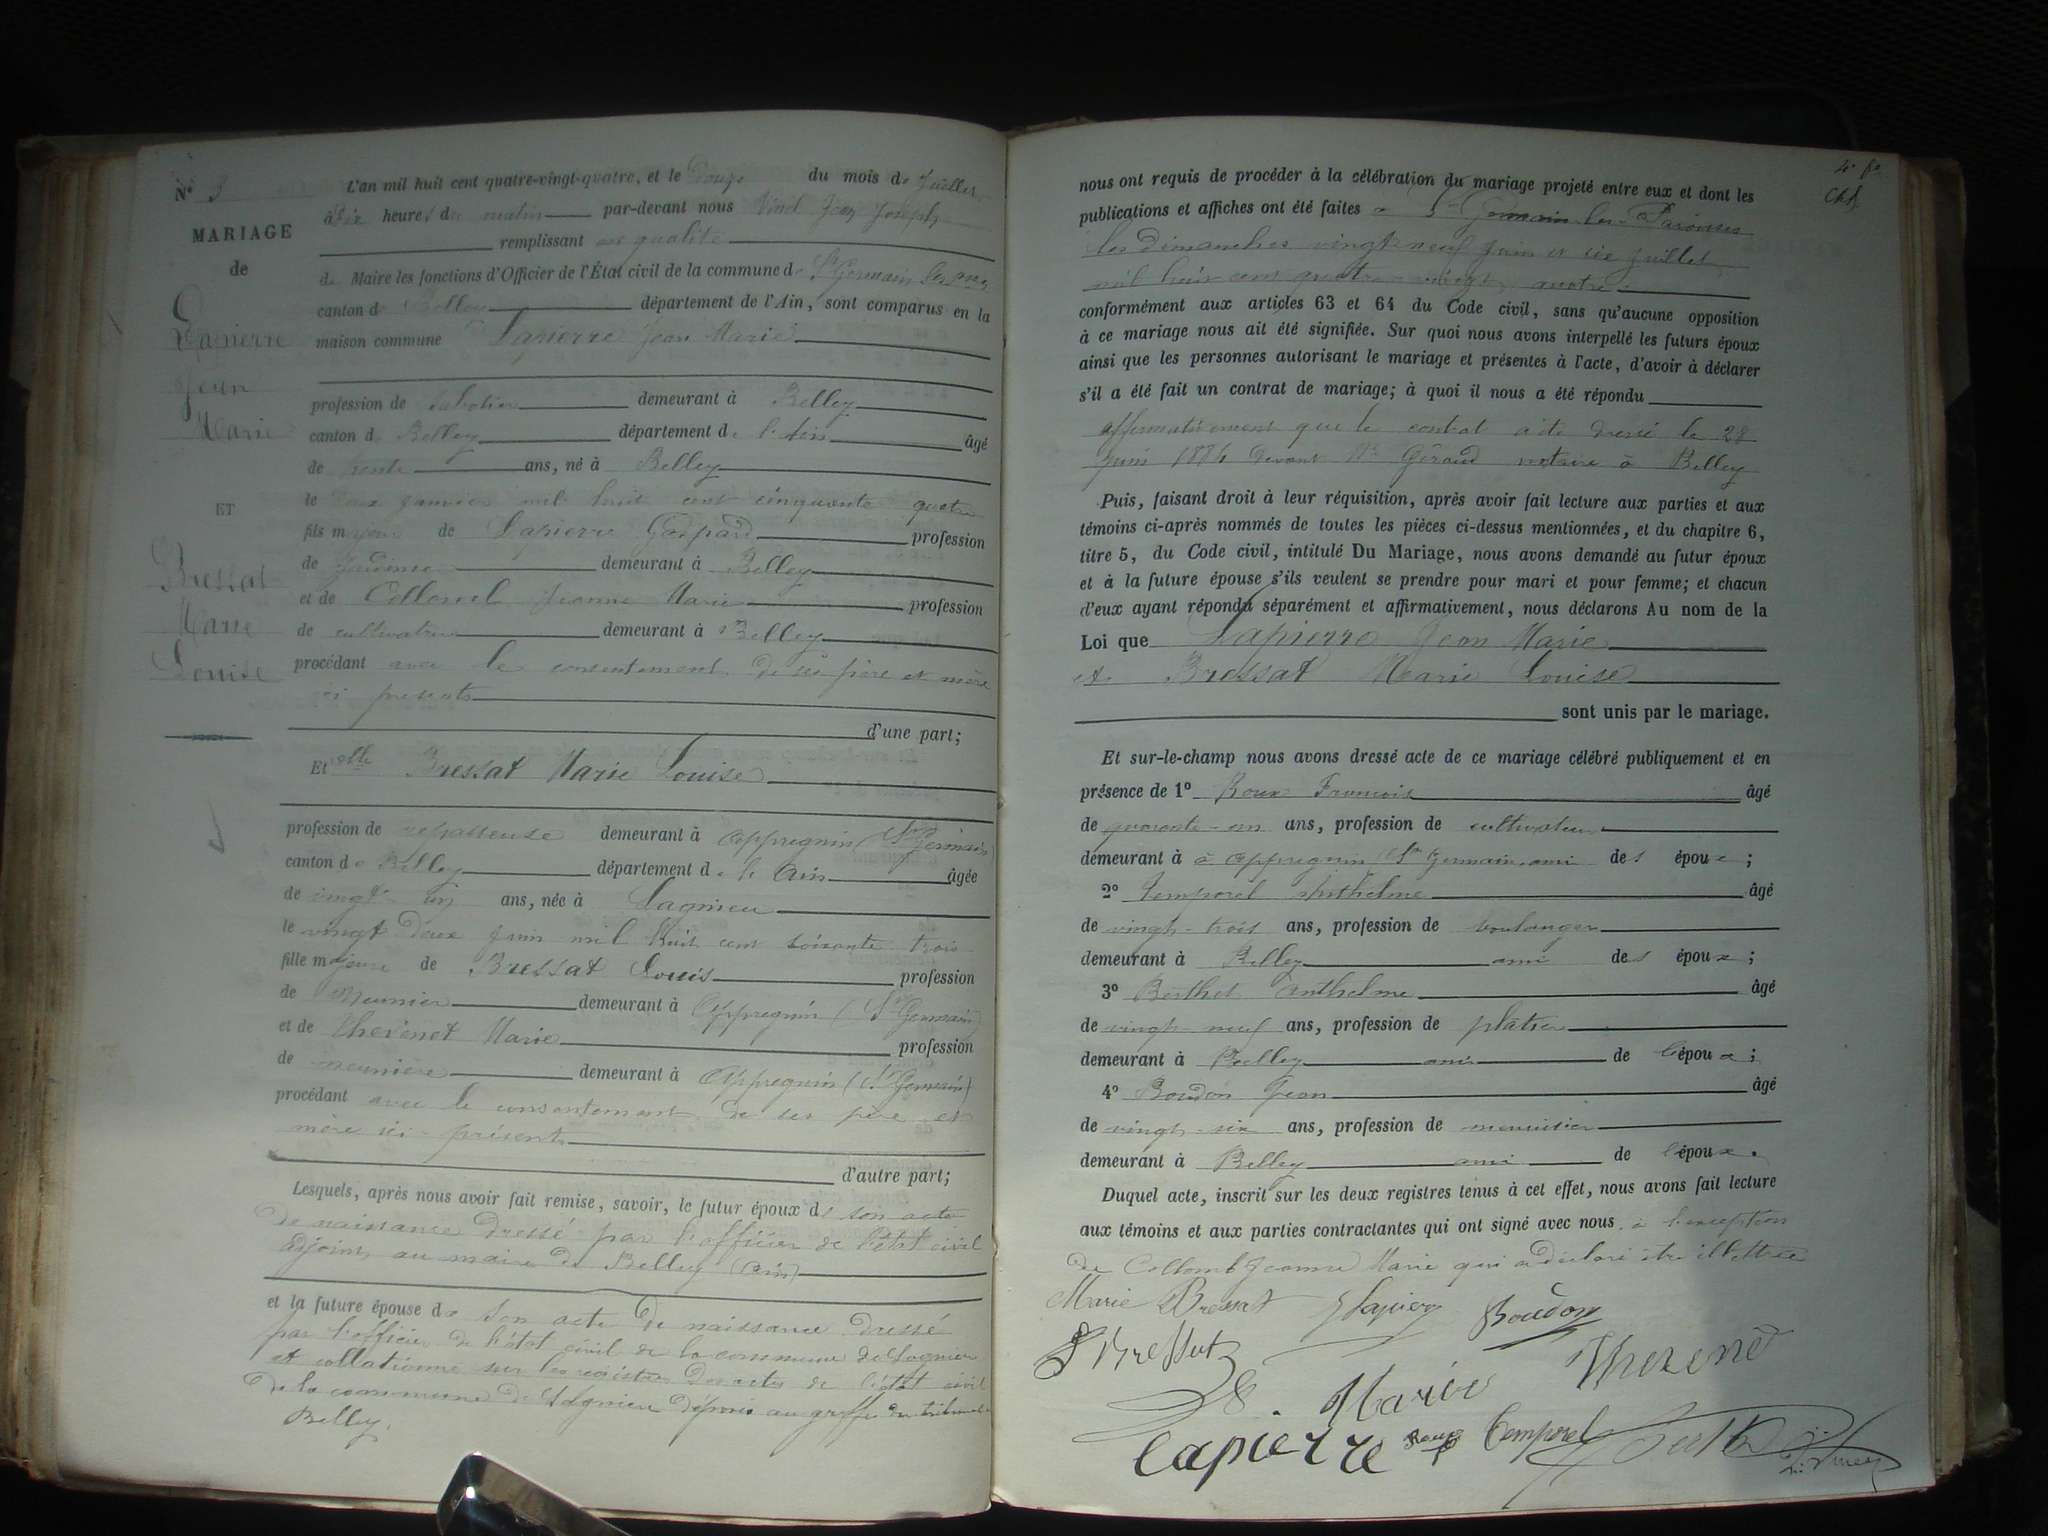 N° 3
MARIAGE
de
Lapierre
Jean
Marie
ET
Bressat
Marie
Louise
L'an mil huit cent quatre-vingt-quatre, et le Douze du mois de Juillet
à dix heures du matin par-devant nous Vinel Jean Joseph
remplissant en qualité
de Maire les fonctions d'Officier de l'État civil de la commune de St Germain les
canton de Belley département de l'Ain, sont comparus en la
maison commune Lapierre Jean Marie
profession de sabotier demeurant à Belley
canton de Belley département de l'Ain âgé
de trente ans, né à Belley
le deux janvier mil huit cent cinquante quatre
fils majeur de Lapierre Gaspard profession
de demeurant à Belley
et de Collomb Jeanne Marie profession
de cultivatrice demeurant à Belley
procédant avec le consentement de ses père et mère
ici présents
d'une part;
Et elle Bressat Marie Louise
profession de repasseuse demeurant à Appregnin (St Germain)
canton de Belley département de l'Ain âgée
de vingt un ans, née à Lagnieu
le vingt deux juin mil huit cent soixante trois
fille majeure de Bressat Louis profession
de Meunier demeurant à Appregnin (St Germain)
et de Thevenet Marie profession
de meunière demeurant à Appregnin (St Germain)
procédant avec le consentement de ses père et
mère ici présents
d'autre part;
Lesquels, après nous avoir fait remise, savoir, le futur époux de son acte
de naissance dressé par l'officier de l'état civil
adjoint au maire de Belley (Ain)
et la future épouse de son acte de naissance dressé
par l'officier de l'état civil de la commune de Lagnieu
et collationné sur les registres des actes de l'état civil
de la commune de Lagnieu déposés au greffe du tribunal
Belley.
nous ont requis de procéder à la célébration du mariage projeté entre eux et dont les
publications et affiches ont été faites à St Germain les Paroisses
les dimanches vingt neuf juin et six juillet
mil huit cent quatre-vingt quatre
conformément aux articles 63 et 64 du Code civil, sans qu'aucune opposition
à ce mariage nous ait été signifiée. Sur quoi nous avons interpellé les futurs époux
ainsi que les personnes autorisant le mariage et présentes à l'acte, d'avoir à déclarer
s'il a été fait un contrat de mariage; à quoi il nous a été répondu
affirmativement que le contrat a été dressé le 28
juin 1884 devant Me Géraud notaire à Belley
Puis, faisant droit à leur réquisition, après avoir fait lecture aux parties et aux
témoins ci-après nommés de toutes les pièces ci-dessus mentionnées, et du chapitre 6,
titre 5, du Code civil, intitulé Du Mariage, nous avons demandé au futur époux
et à la future épouse s'ils veulent se prendre pour mari et pour femme; et chacun
d'eux ayant répondu séparément et affirmativement, nous déclarons Au nom de la
Loi que Lapierre Jean Marie
et Bressat Marie Louise
sont unis par le mariage.
Et sur-le-champ nous avons dressé acte de ce mariage célébré publiquement et en
présence de 1° Roux Francois âgé
de quarante-un ans, profession de cultivateur
demeurant à à Appregnin (St Germain ami des époux;
2° Temporel Anthelme âgé
de vingt-trois ans, profession de boulanger
demeurant à Belley ami des époux;
3° Berthet Anthelme âgé
de vingt-neuf ans, profession de plâtrier
demeurant à Belley ami de l'époux;
4° Boudon Jean âgé
de vingt-six ans, profession de menuisier
demeurant à Belley ami de l'époux.
Duquel acte, inscrit sur les deux registres tenus à cet effet, nous avons fait lecture
aux témoins et aux parties contractantes qui ont signé avec nous à l'exception
de Collomb Jeanne Marie qui a déclaré être illettrée
Marie Bressat Lapierre Boudon
Bressat Marie Thevenet
Lapierre Roux Temporel